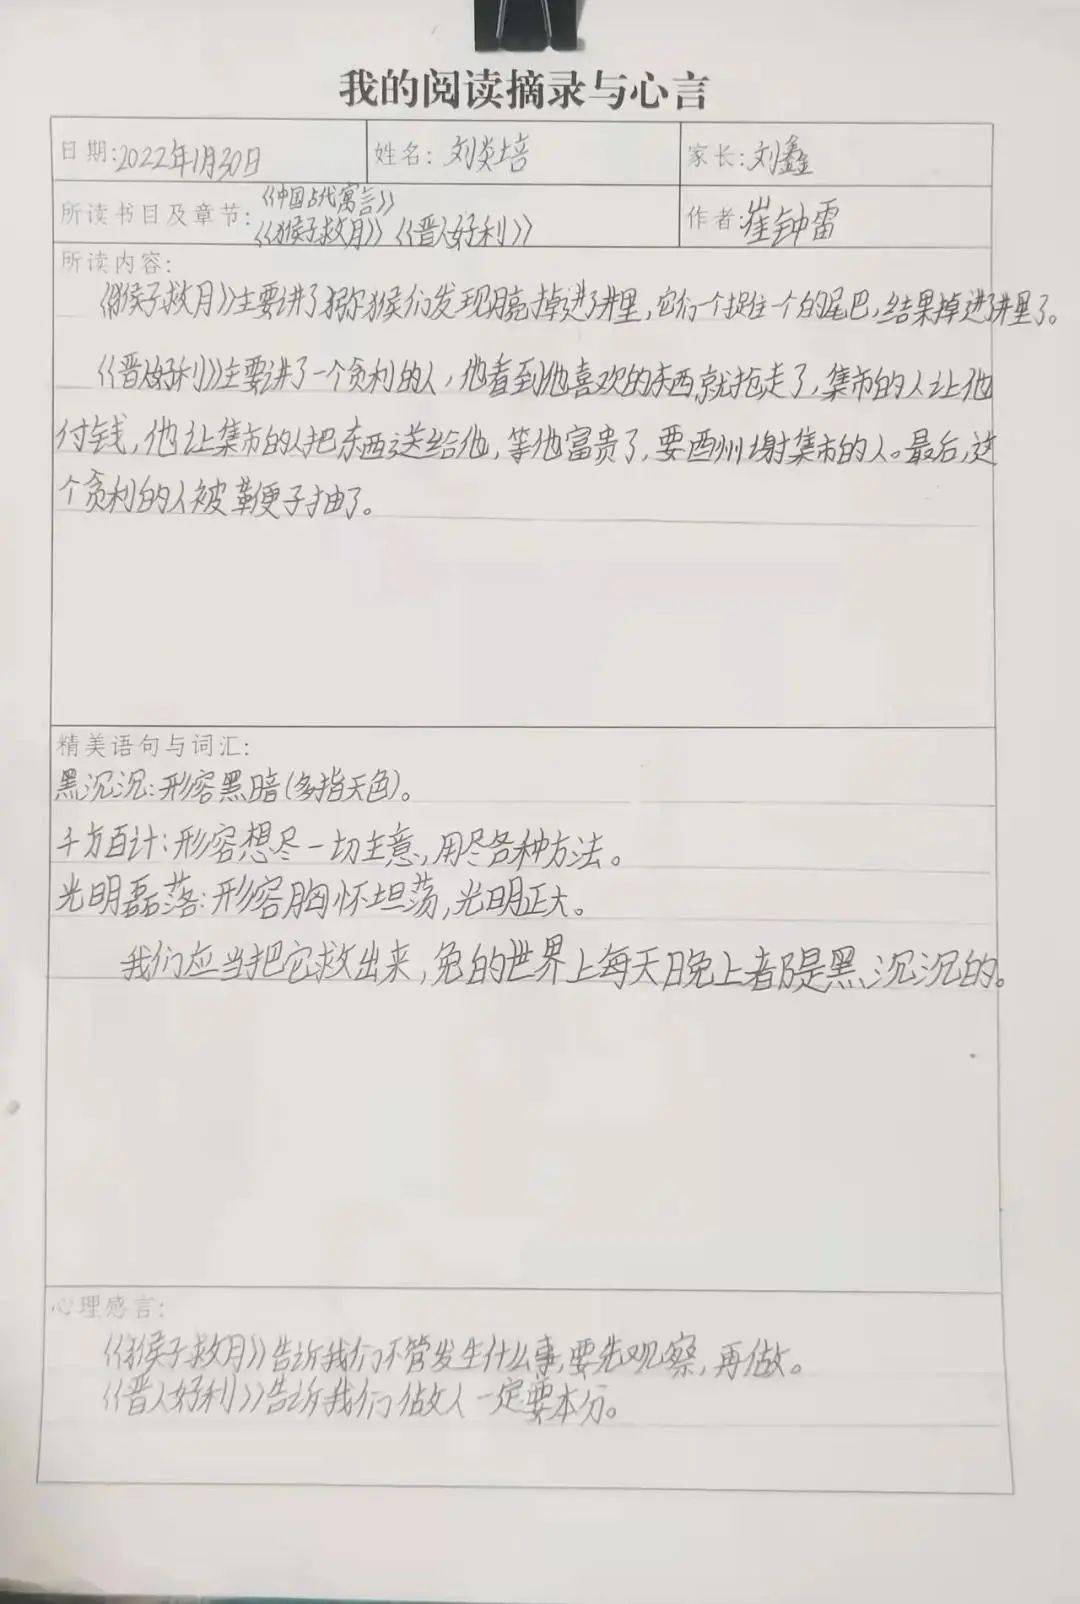 我的阅读摘录与心言
日期:2022年1月30日 姓名:刘炎培 家长:刘鑫
所读书目及章节:《中国古代寓言》《猴子救月》《晋人好利》 作者:崔钟雷
所读内容:
《猴子救月》主要讲了猕猴们发现月亮掉进了井里,它们一个捉住一个的尾巴,结果掉进了井里了。
《晋人好利》主要讲了一个贪利的人,他看到他喜欢的东西就抢走了,集市的人让他
付钱,他让集市的人把东西送给他,等他富贵了,要酬谢集市的人。最后,这
个贪利的人被鞭子抽了。
精美语句与词汇:
黑沉沉:形容黑暗(多指天色)。
千方百计:形容想尽一切主意,用尽各种方法。
光明磊落:形容胸怀坦荡,光明正大。
我们应当把它救出来,免的世界上每天晚上都是黑沉沉的。
心理感言:
《猴子救月》告诉我们不管发生什么事,要先观察,再做。
《晋人好利》告诉我们做人一定要本分。